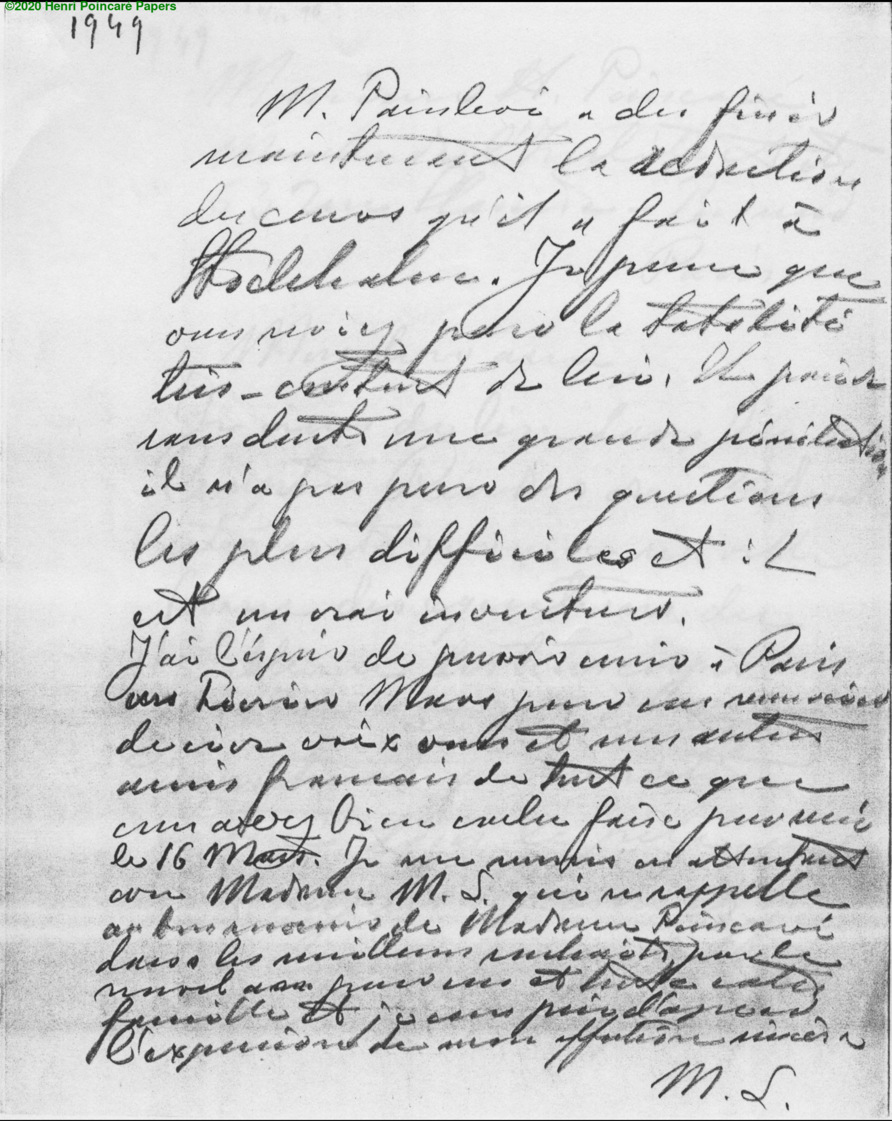 ©2020 Henri Poincaré Papers
1949
M. Painlevé a du finir
maintenant la rédaction
du cours qu'il a fait à
Stockholm. Je pense que
vous n'avez pour la totalité
très-content de lui. Il possède
sans doute une grande pénétration
il n'a pas peur des questions
les plus difficiles et il
est un vrai inventeur.
J'ai l'espoir de pouvoir venir à Paris
vers Février Mars pour vous remercier
de vive voix vous et mes autres
amis français de tout ce que
vous avez bien voulu faire pour moi
le 16 Mars. Je me réunis en attendant
con Madame M. L. qui se rappelle
au bon souvenir de Madame Poincaré
dans les meilleurs souhaits pour le
nouvel an pour vous et toute votre
famille et je vous prie d'agréer
l'expression de mon affection sincère
M. L.